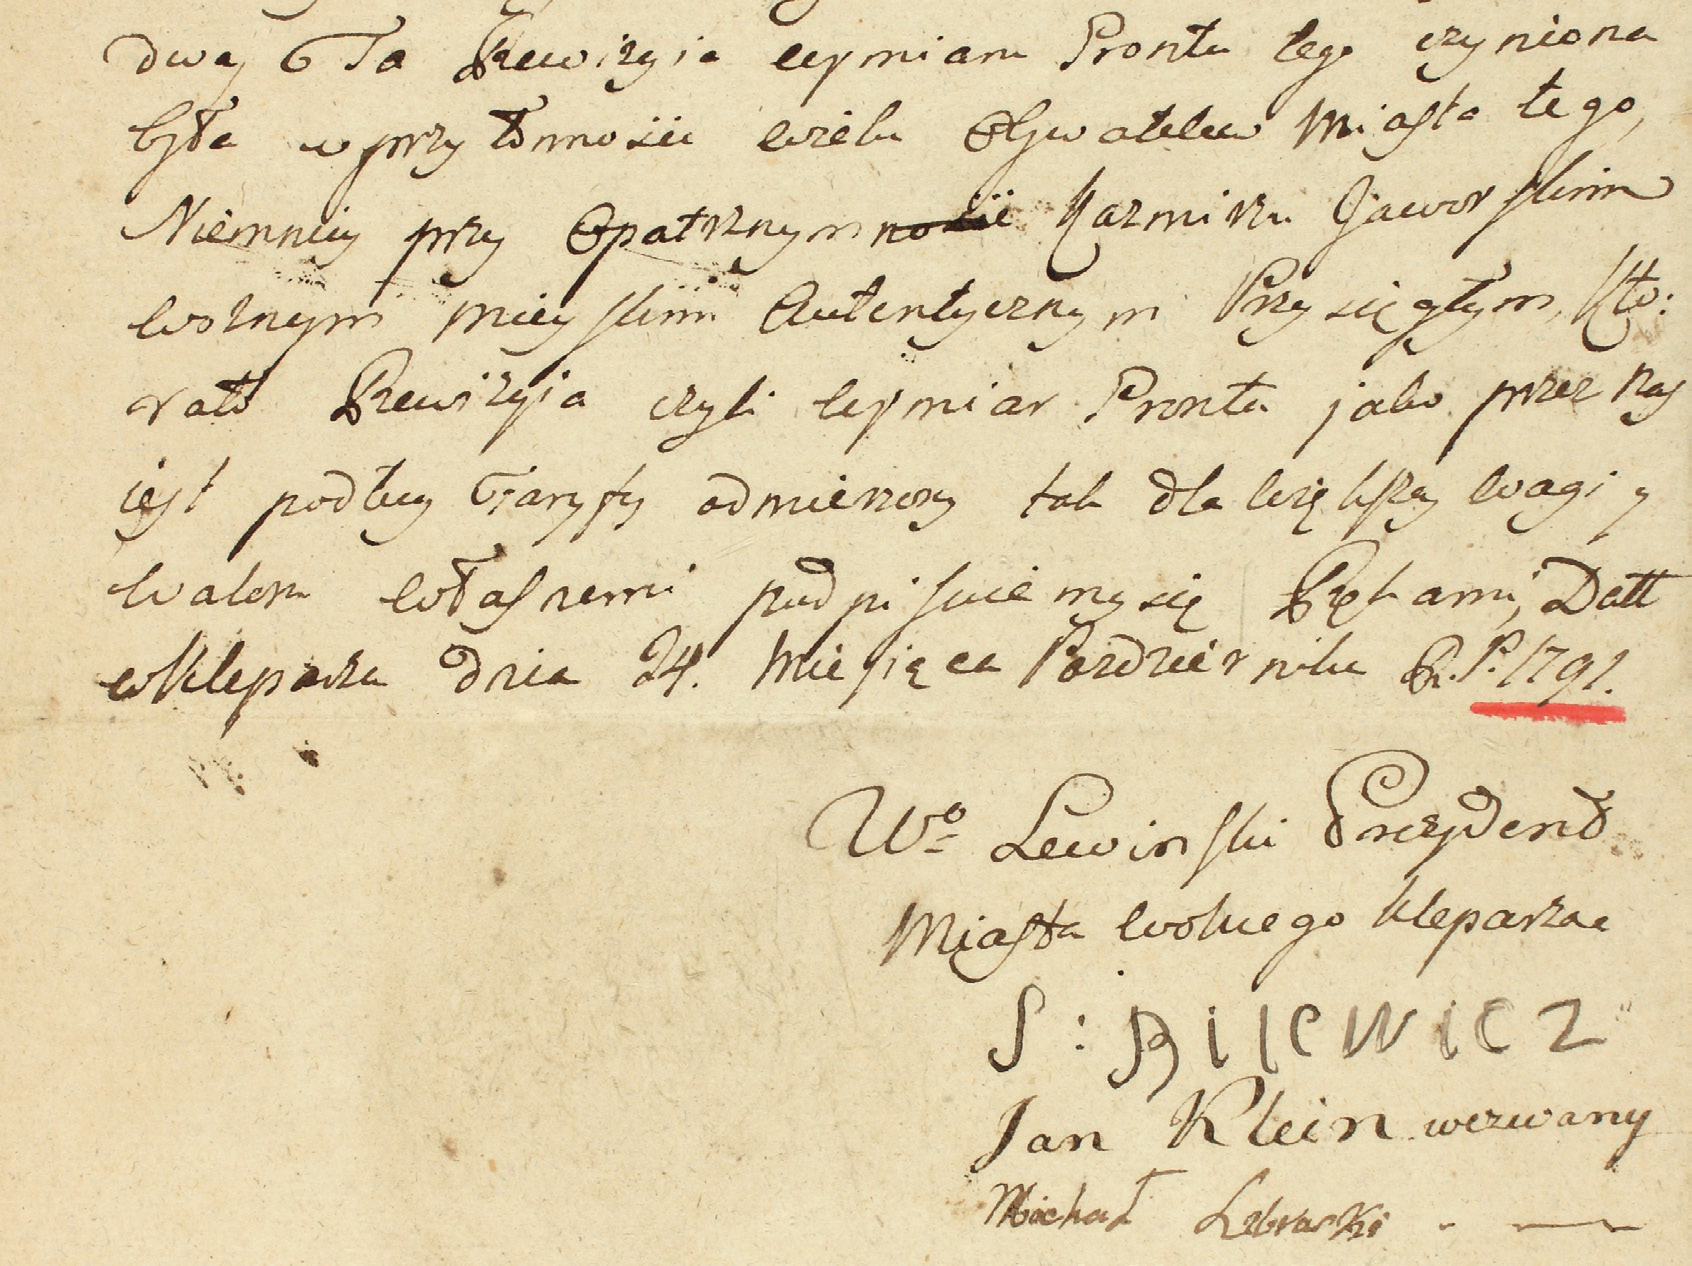 dwa, Ta Rewizyia wymiaru Prontu tego czyniona
była w przytomności wielu Obywatelow Miasta tego,
Niemniey przy Opatrznym Kazmirzu Jaworskim
woznym mieyskim Autentycznym Przysięgłym, Kto:
rato Rewizyia czyli wymiar Prontu jako przez nas
iest podług Taryfy odmierzony tak dla większey wagi y
waloru własnemi podpisuiemy się Rękami, Datt
w Kleparzu Dnia 24. Miesiąca Pazdziernika R. P. 1791.
Wo Lewinski Prezydend
Miasta wolnego Kleparza
S: Bilewicz
Jan Klein wezwany
Michał